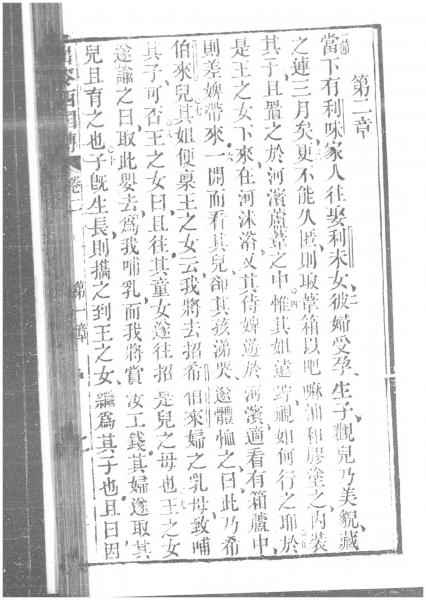 第二章
當下有利味家人往娶利未女彼婦受孕生子觀兒乃美貌藏
之連三月矣更不能久匿則取葦箱以吧嘛油和膠塗之內裝
其子且置之於河濱蘆葦之中惟其姐遠 觀如何行之耶於
是王之女下來在河沐浴又其侍婢遊於河濱適看有箱蘆中
則差婢帶來一開而看其兒卻其孩涕哭遂體恤之曰此乃希
伯來兒其姐便稟王之女云我將去招希伯來婦之乳母致哺
其子可否王之女曰且往其童女遂往招是兒之母也王之女
遂諭之曰取此嬰去爲我哺乳而我將賞汝工錢其婦遂取其
兒且育之也子既生長則攜之到王之女繼爲其子也且曰因
卷二 第二章